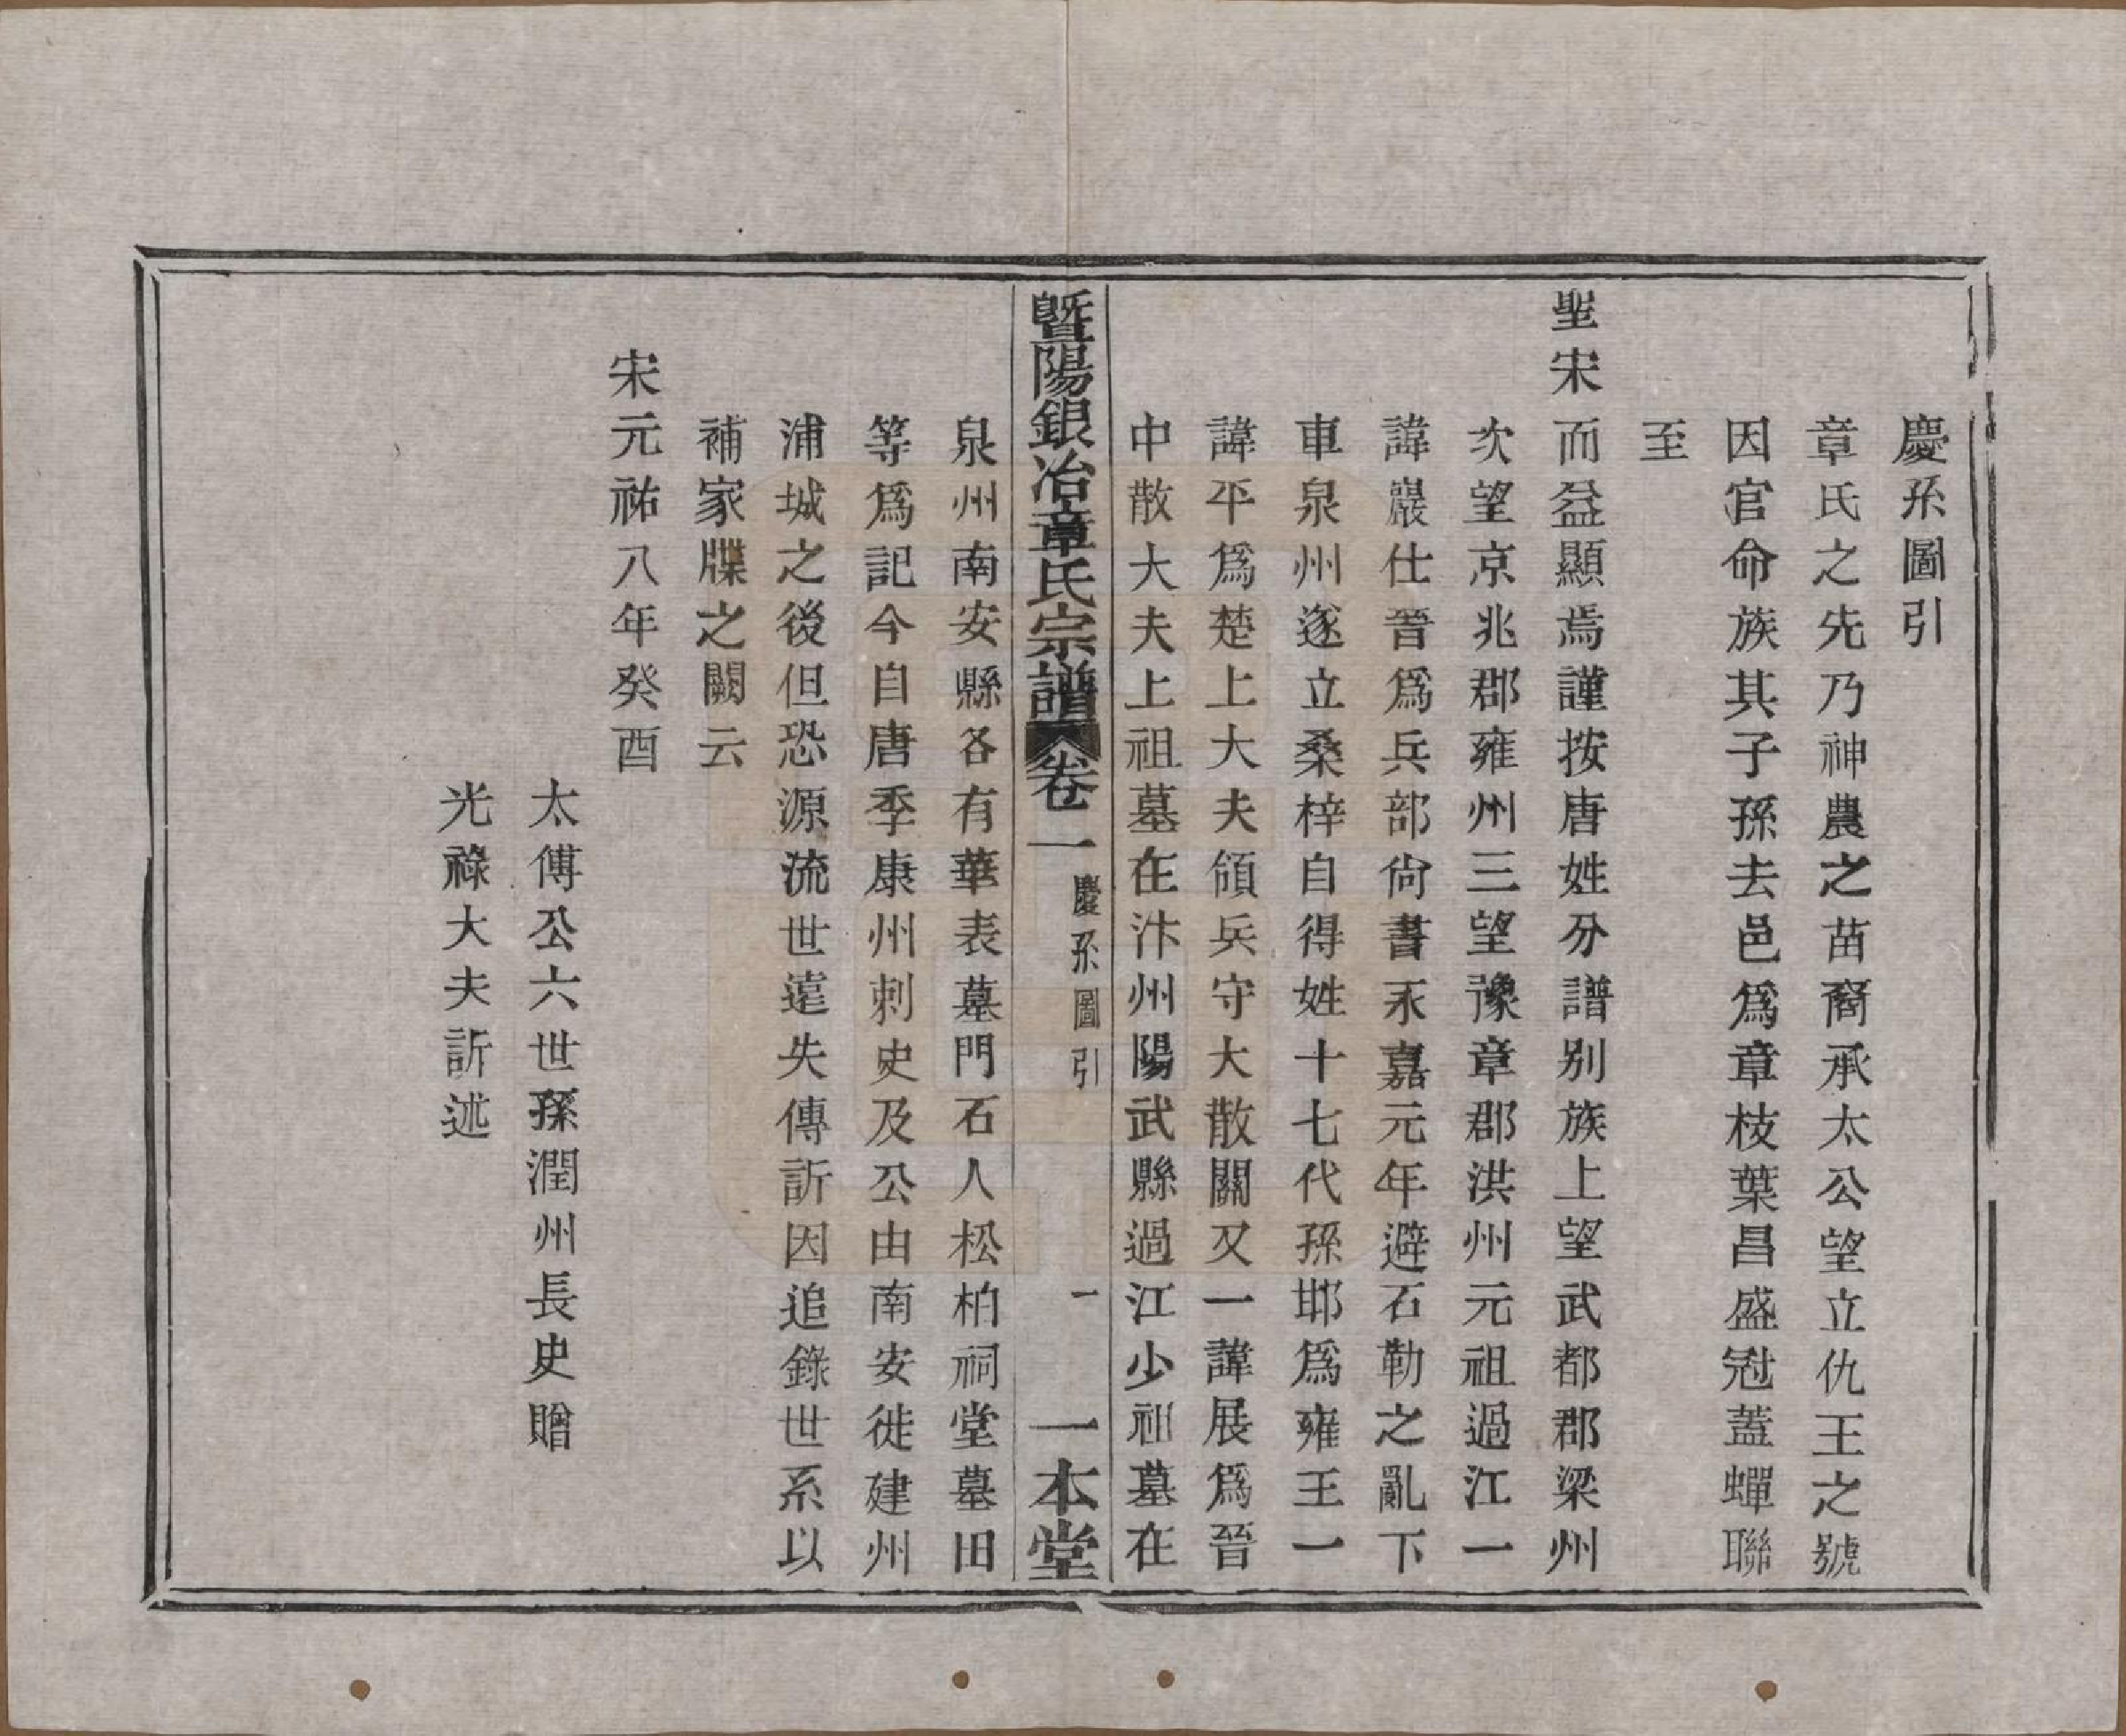 慶系圖引
章氏之先乃神農之苗裔承太公望立仇王之號
因官命族其子孫去邑爲章枝葉昌盛冠蓋蟬聯
至
聖宋而益顯焉謹按唐姓分譜别族上望武都郡梁州
次望京兆郡雍州三望豫章郡洪州元祖過江一
諱巖仕晉爲兵部尙書永嘉元年避石勒之亂下
車泉州遂立桑梓自得姓十七代孫邯爲雍王一
諱平爲楚上大夫領兵守大散關又一諱展爲晉
中散大夫上祖墓在汴州陽武縣過江少祖墓在
暨陽銀冶章氏宗譜
卷一
慶系圖引
一
一本堂
泉州南安縣各有華表墓門石人松柏祠堂墓田
等爲記今自唐季康州刺史及公由南安徙建州
浦城之後但恐源流世遠失傳訢因追錄世系以
補家牒之闕云
宋元祐八年癸酉
太傅公六世孫潤州長史贈
光祿大夫訢述